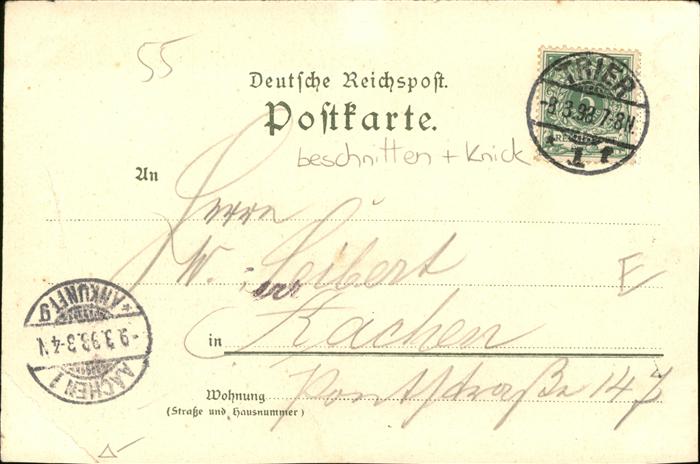 55
Deutsche Reichspost.
Postkarte.
TRIER
-8.3.98.7-8N.
* 1 f
beschnitten + Knick
An
Herrn
W. Seibert
E
ANKUNFT 9
-9.3.98.3-4V
AACHEN 1
in Aachen
Wohnung Pontstraße 147
(Straße und Hausnummer)